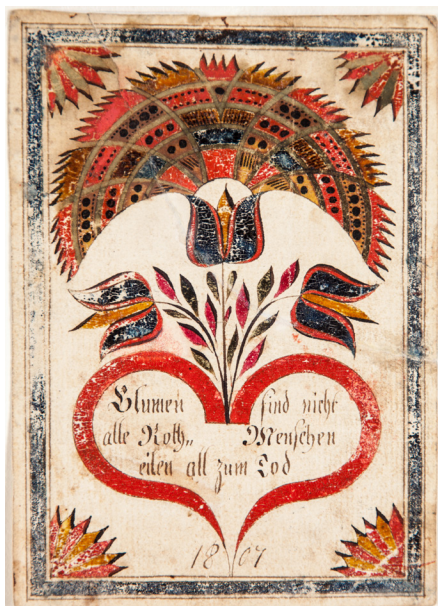 Blumen sind nicht
alle Roth„ Menschen
eilen all zum Tod
1807